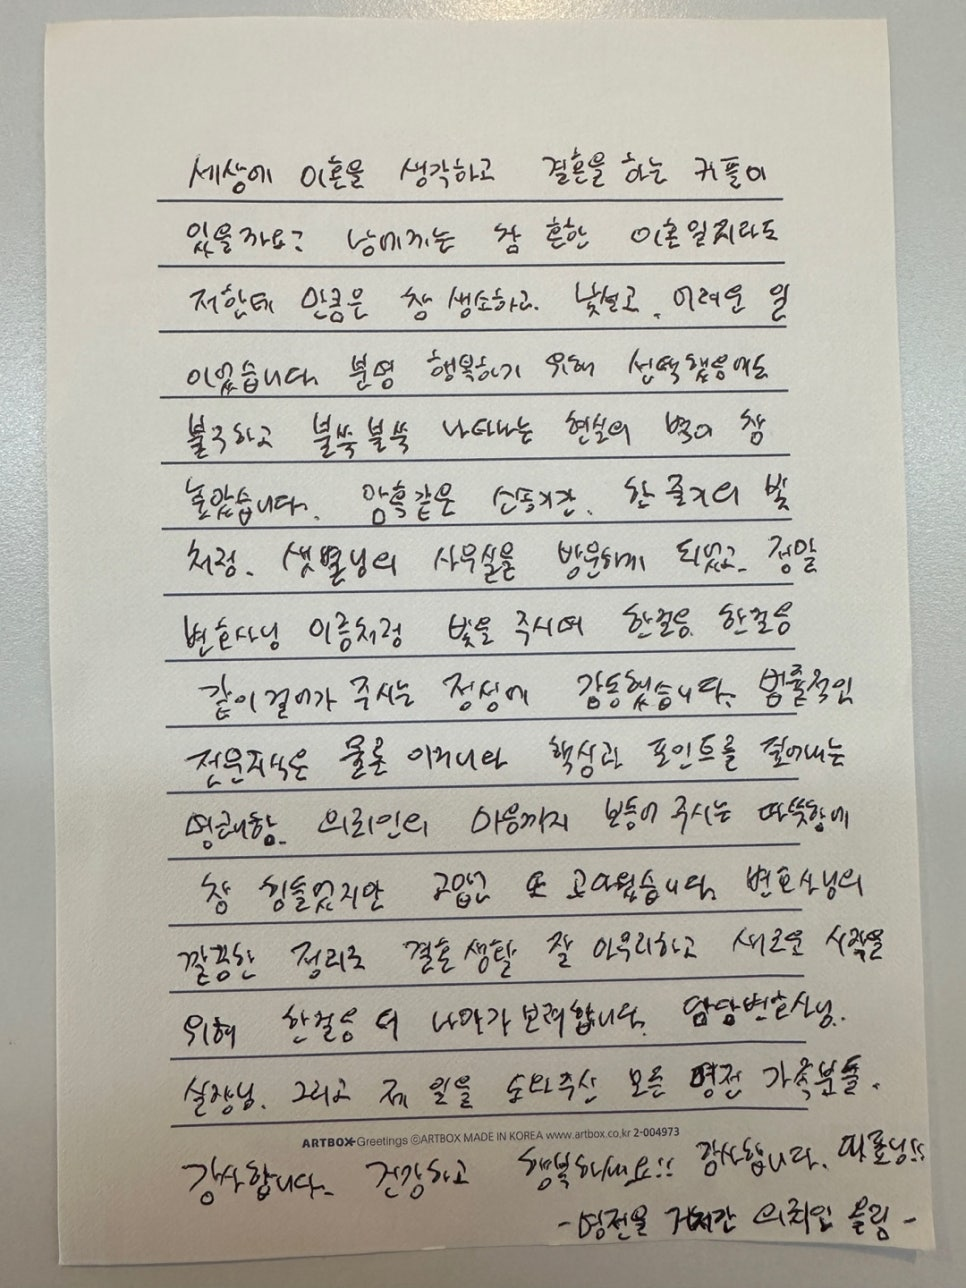 세상에 이혼을 생각하고 결혼을 하는 커플이
있을까요? 남에게는 참 흔한 이혼일지라도
저한테 만큼은 참 생소하고. 낯설고. 어려운 일
이었습니다. 분명 행복하기 위해 선택했음에도
불구하고 불쑥불쑥 나타나는 현실의 벽이 참
높았습니다. 암흑같은 순간, 한 줄기의 빛
처럼. 샛별님의 사무실을 방문하게 되었고. 정말
변호사님 이름처럼 빛을 주시며 한걸음 한걸음
같이 걸어가 주시는 정성에 감동했습니다. 법률적인
전문지식은 물론 이거니와 핵심과 포인트를 짚어내는
명쾌함. 의뢰인의 마음까지 보듬어 주시는 따뜻함에
참 힘들었지만 고맙고 또 고마웠습니다. 변호사님의
깔끔한 정리로 결혼생활 잘 마무리하고 새로운 시작을
위해 한걸음 더 나아가보려합니다. 담당변호사님.
실장님. 그리고 제 일을 도와주신 모든 명전 가족분들.
ARTBOX Greetings ©ARTBOX MADE IN KOREA www.artbox.co.kr 2-004973
감사합니다. 건강하고 행복하세요!! 감사합니다.
- 명전을 거쳐간 의뢰인 올림 -